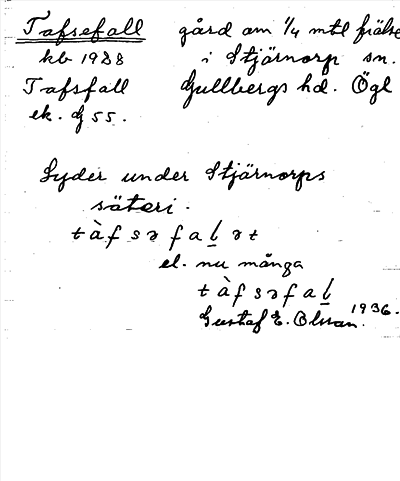 Tafsefall gård om 1/4 mtl frälse
kb 1988 i Stjärnorp sn.
Tafsfall Gullbergs hd. Ögl
ek. G 55.
Lyder under Stjärnorps
säteri.
tàfsəfaḻət
el. nu många
tàfsəfaḻ
1936.
Gustaf E. Olsson.